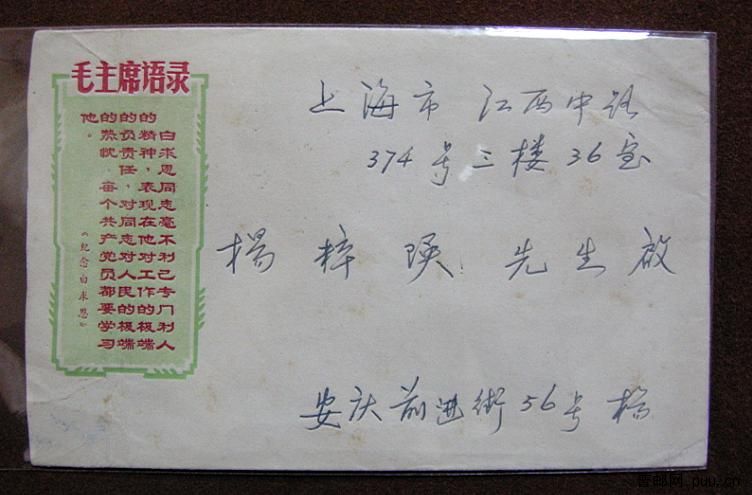 毛主席语录
白求恩同志毫不利己专门利人
的精神，表现在他对工作的极端
的负责任，对同志对人民的极端
的热忱。每个共产党员都要学习
他。
《纪念白求恩》
上海市 江西中路
374号三楼36室
楊 梓 瑛 先生啟
安庆前进街56号 楊